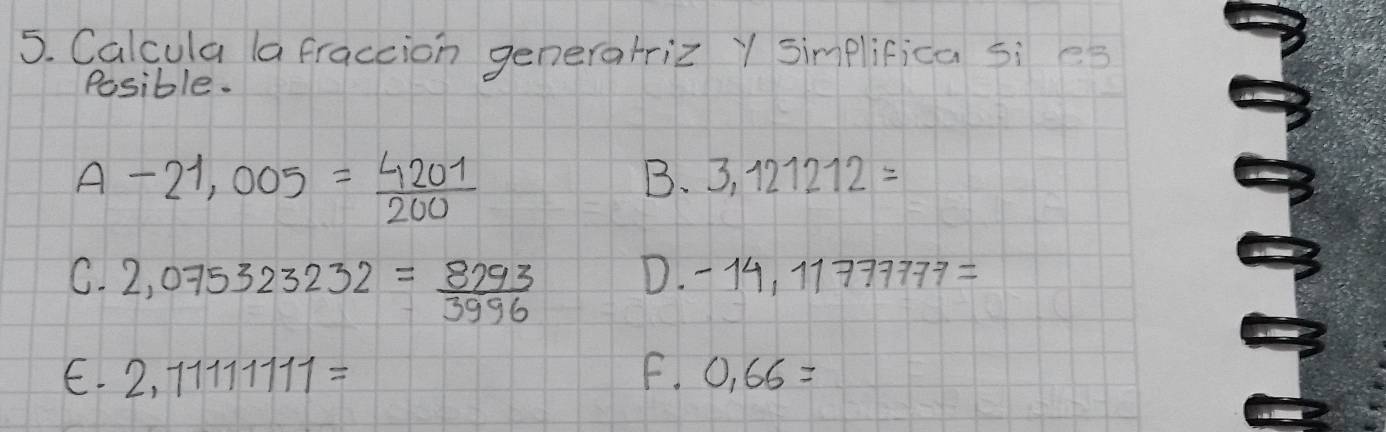 5. Calcula la fracción generatriz y simplifica si es
Posible.
A -21,005 = 4201/200 B. 3,121212 =
C. 2,075323232 = 8293/3996 D. -14,11777777 =
E. 2,11111111 = F. 0,66 =